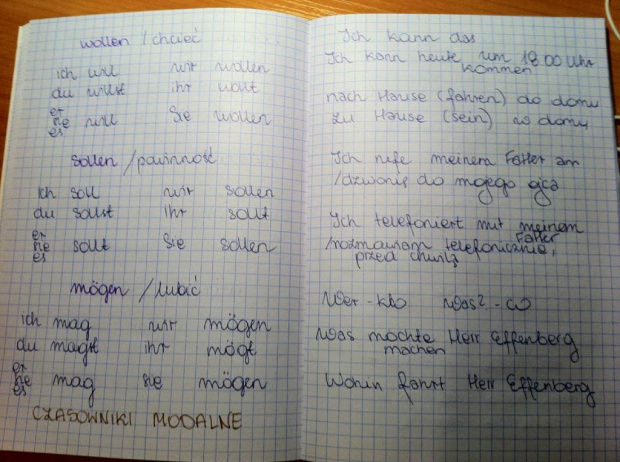 wollen / chcieć
ich will wir wollen
du willst ihr wollt
er
sie will Sie wollen
es
sollen / powinność
ich soll wir sollen
du sollst ihr sollt
er
sie sollt Sie sollen
es
mögen / lubić
ich mag wir mögen
du magst ihr mögt
er
sie mag sie mögen
es
CZASOWNIKI MODALNE
Ich kann das
Ich kann heute um 18.00 Uhr
kommen
nach Hause (fahren) do domu
zu Hause (sein) w domu
Ich rufe meinem Fatter an
/dzwonię do mojego ojca
Ich telefoniert mit meinem
Fatter
/rozmawiam telefonicznie,
przed chwilą
Wer - kto Was? - co
Was möchte Herr Effenberg
machen
Wohin fahrt Herr Effenberg